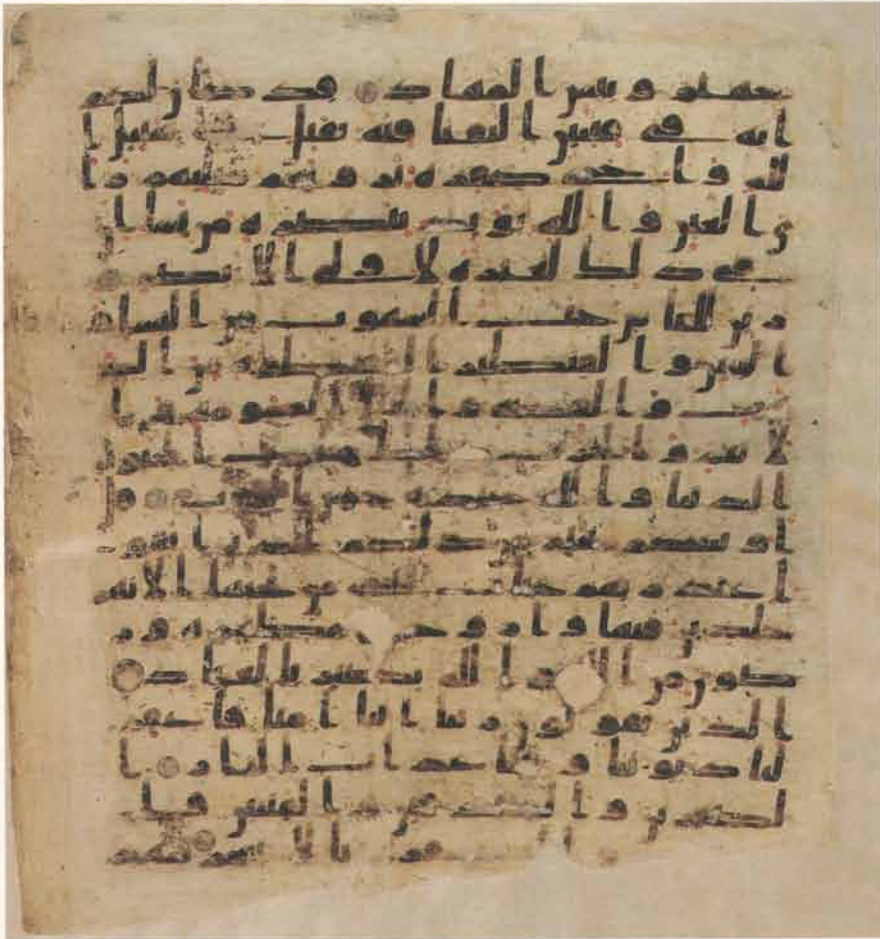 جهنم وبئس المهاد قد كان لكم
اية في فئتين التقتا فئة تقتل في سبيل ا
لله واخرى كافرة يرونهم مثليهم را
ي العين والله يؤيد بنصره من يشا ا
ن في ذلك لعبرة لاولي الابصر
زين للناس حب الشهوت من النسا و
البنين والقنطير المقنطرة من الذ
هب والفضة والخيل المسومة وا
لانعم والحرث ذلك متع الحيوة
الدنيا والله عنده حسن الماب قل
اونبئكم بخير من ذلكم للذين اتقو
ا عند ربهم جنت تجري من تحتها الانهر
خلدين فيها وازوج مطهرة ور
ضون من الله والله بصير بالعباد
الذين يقولون ربنا اننا امنا فاغفر
لنا ذنوبنا وقنا عذاب النار ا
لصبرين و
بالاسحر شهد